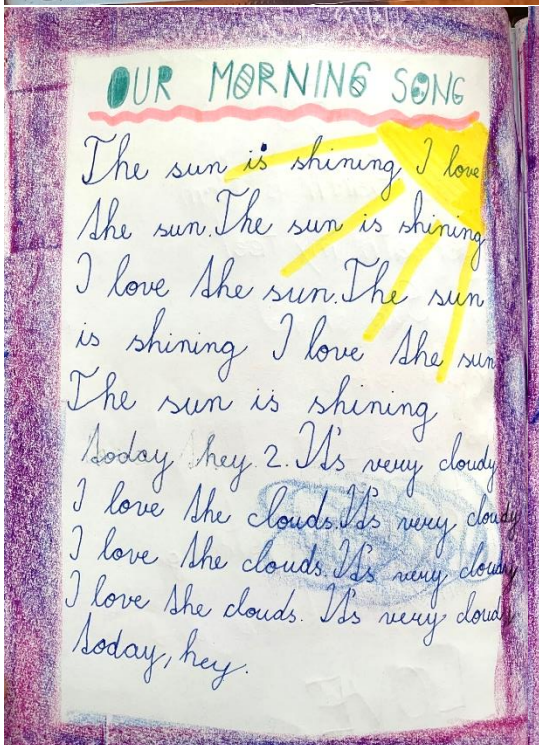 OUR MORNING SONG
The sun is shining I love
the sun. The sun is shining
I love the sun. The sun
is shining I love the sun
The sun is shining
today hey 2. It's very cloudy
I love the clouds. It's very cloudy
I love the clouds. It's very cloudy
I love the clouds. It's very cloudy
today, hey.